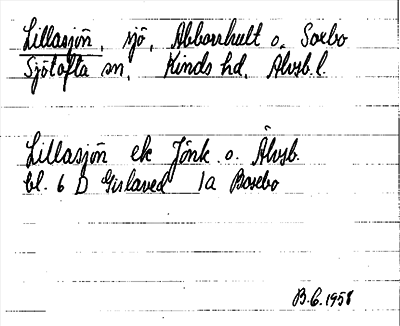 Lillasjön, sjö, Abborrhult o. Saxbo
Sjötofta sn, Kinds hd, Älvsb. l.
Lillasjön ek Jönk. o. Älvsb.
bl. 6 D Gislaved 1a Bosebo
B.G. 1958